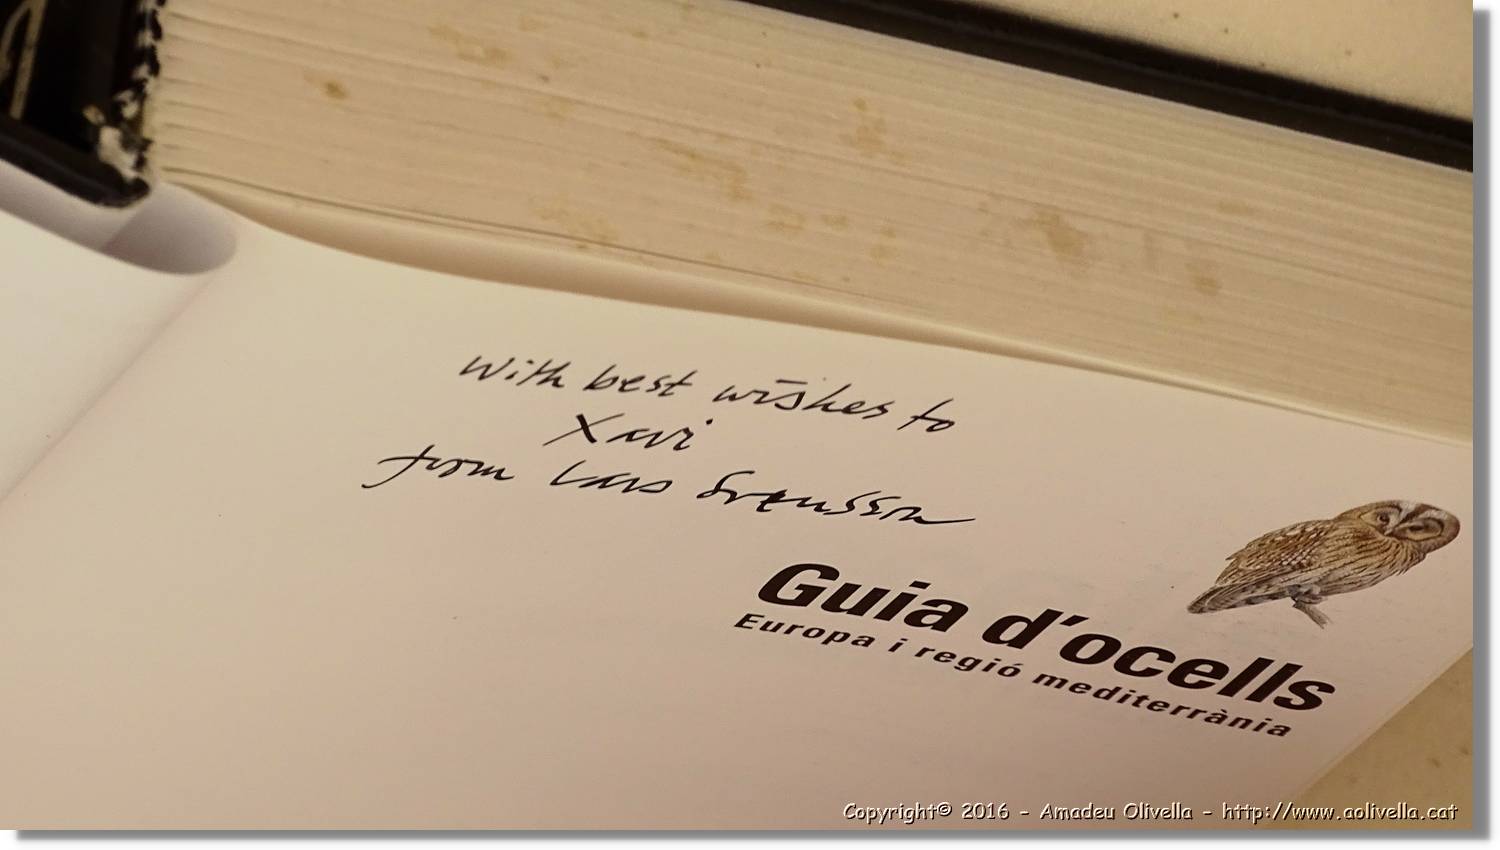 With best wishes to
Xavi
from Lars Svensson
Guia d'ocells
Europa i regió mediterrània
Copyright© 2016 - Amadeu Olivella - http://www.aolivella.cat